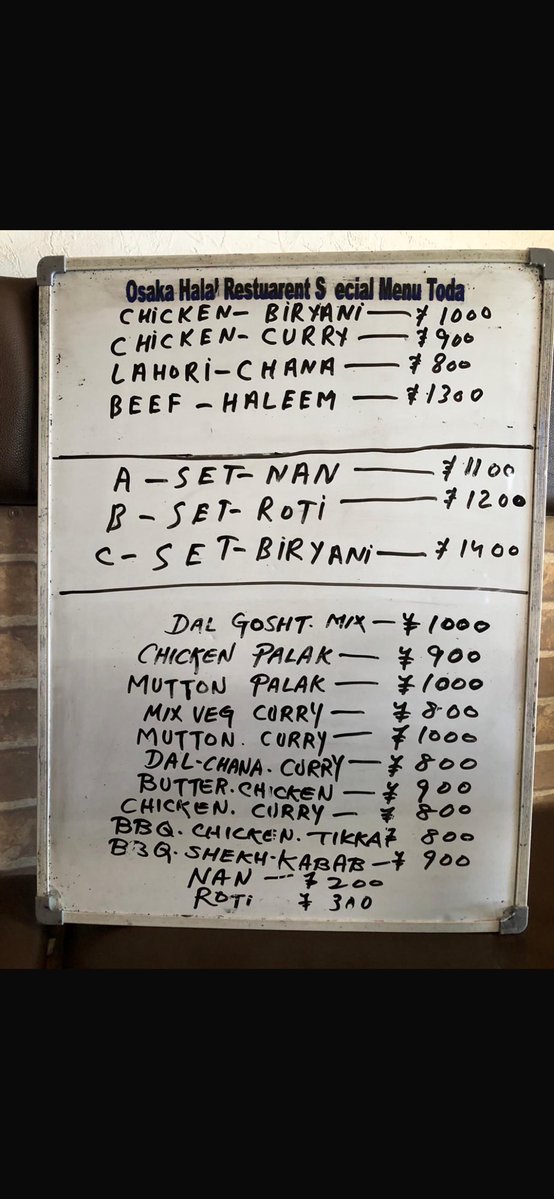 Osaka Halal Restuarent S ecial Menu Toda
CHICKEN- BIRYANI — ¥ 1000
CHICKEN- CURRY — ¥ 900
LAHORI-CHANA — ¥ 800
BEEF - HALEEM — ¥1300
A - SET- NAN — ¥ 1100
B - SET- ROTI — ¥ 1200
C- SET-BIRYANI — ¥ 1400
DAL GOSHT. MIX — ¥ 1000
CHICKEN PALAK — ¥ 900
MUTTON PALAK — ¥ 1000
MIX VEG CURRY — ¥ 800
MUTTON. CURRY — ¥ 1000
DAL-CHANA. CURRY — ¥ 800
BUTTER. CHICKEN — ¥ 900
CHICKEN. CURRY — ¥ 800
BBQ. CHICKEN. TIKKA ¥ 800
BBQ. SHEKH-KABAB — ¥ 900
NAN --- ¥ 200
ROTI ¥ 300